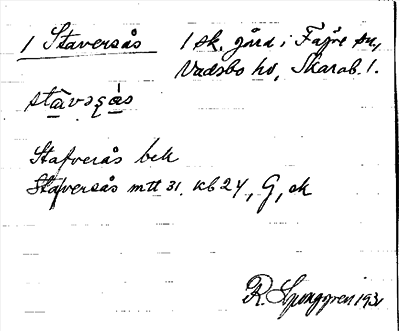 1 Staversås 1 sk. gård i Fägre sn,
Vadsbo hd, Skarab. l.
Stafverås bek
Stafversås mtt 31. KB 24, G, ek
R. Ljunggren 1931